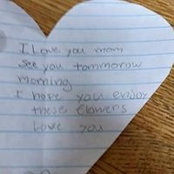 I Love you mom
See you tommorow
morning
I hope you enjoy
these flowers
Love you